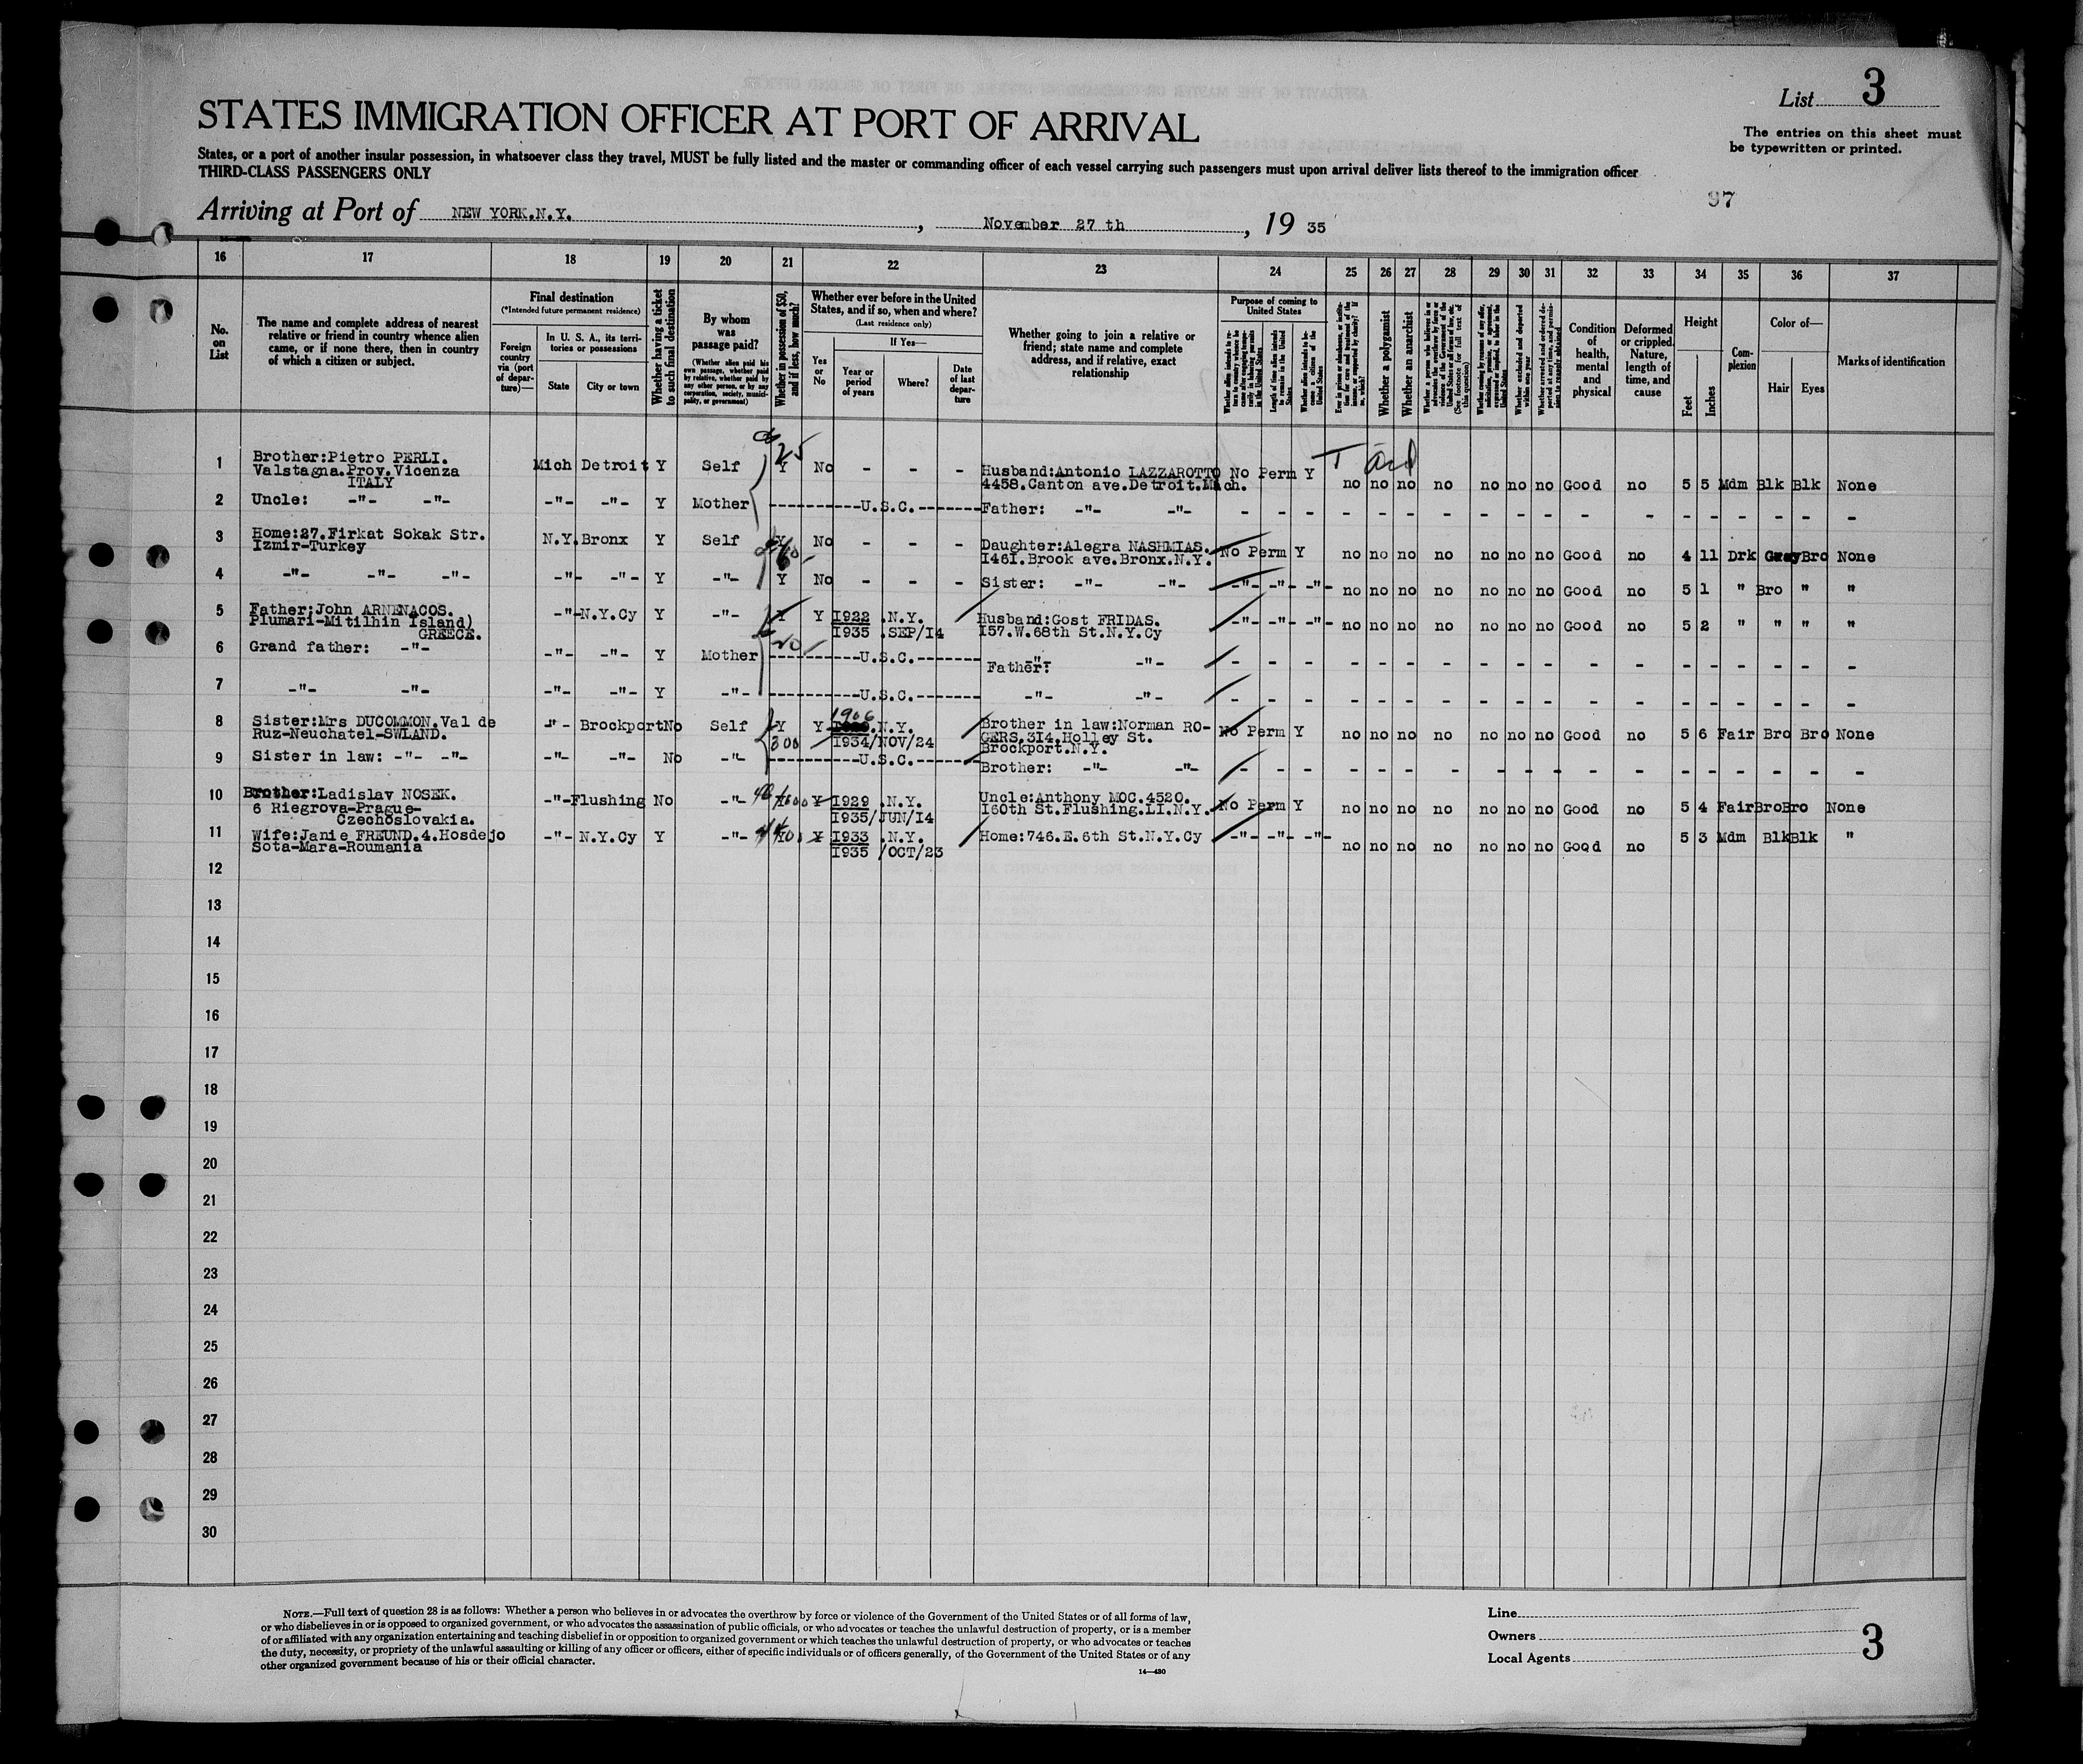 List 3
STATES IMMIGRATION OFFICER AT PORT OF ARRIVAL
The entries on this sheet must
be typewritten or printed.
States, or a port of another insular possession, in whatsoever class they travel, MUST be fully listed and the master or commanding officer of each vessel carrying such passengers must upon arrival deliver lists thereof to the immigration officer
THIRD-CLASS PASSENGERS ONLY
97
Arriving at Port of NEW YORK.N.Y. , November 27 th , 19 35
16 17 18 19 20 21 22 23 24 25 26 27 28 29 30 31 32 33 34 35 36 37
No. on List
The name and complete address of nearest relative or friend in country whence alien came, or if none there, then in country of which a citizen or subject.
Final destination
(*Intended future permanent residence)
Foreign country via (port of departure)—
In U. S. A., its territories or possessions
State City or town
Whether having a ticket to such final destination
By whom was passage paid?
(Whether alien paid his own passage, whether paid by relative, whether paid by any other person, or by any corporation, society, municipality, or government)
Whether in possession of $50, and if less, how much?
Whether ever before in the United States, and if so, when and where?
(Last residence only)
Yes or No
If Yes—
Year or period of years Where? Date of last departure
Whether going to join a relative or friend; state name and complete address, and if relative, exact relationship
Purpose of coming to United States
Length of time alien intends to remain in the United States
Whether alien intends to become a citizen of the United States
Whether a polygamist
Whether an anarchist
Condition of health, mental and physical
Deformed or crippled. Nature, length of time, and cause
Height
Feet Inches
Complexion
Color of—
Hair Eyes
Marks of identification
1 Brother:Pietro PERLI. Mich Detroit Y Self Y 25 No - - - Husband:Antonio LAZZAROTTO No Perm Y
Valstagna.Prov.Vicenza 4458.Canton ave.Detroit.Mich. no no no no no no no Good no 5 5 Mdm Blk Blk None
ITALY
2 Uncle: -"- -"- -"- -"- Y Mother ----------U.S.C.------- Father: -"- -"- - - - - - - - - - - - - - - - - - -
3 Home:27.Firkat Sokak Str. N.Y. Bronx Y Self Y No - - - Daughter:Alegra NASHMIAS. No Perm Y no no no no no no no Good no 4 11 Drk Grey Bro None
Izmir-Turkey I46I.Brook ave.Bronx.N.Y.
4 -"- -"- -"- -"- -"- Y -"- Y No - - - Sister: -"- -"- -"- -"- -"- no no no no no no no Good no 5 1 " Bro " "
5 Father:John ARNENACOS. -"- N.Y.Cy Y -"- Y Y I922 .N.Y. Husband:Gost FRIDAS. -"- -"- -"- no no no no no no no Good no 5 2 " " " "
Plumari-Mitilhin Island) 20 I935 .SEP/I4 I57.W.68th St.N.Y.Cy
GREECE.
6 Grand father: -"- -"- -"- Y Mother ----------U.S.C.------- Father: -"- -"- - - - - - - - - - - - - - - - - - -
7 -"- -"- -"- -"- Y -"- ----------U.S.C.------- -"- -"- - - - - - - - - - - - - - - - - - -
8 Sister:Mrs DUCOMMON.Val de -"- Brockport No Self Y Y 1906 .N.Y. Brother in law:Norman RO- No Perm Y no no no no no no no Good no 5 6 Fair Bro Bro None
Ruz-Neuchatel-SWLAND. 300 I934/NOV/24 GERS.3I4.Holley St.
Brockport.N.Y.
9 Sister in law: -"- -"- -"- -"- No -"- ----------U.S.C.------- Brother: -"- -"- - - - - - - - - - - - - - - - - - -
10 Brother:Ladislav NOSEK. -"- Flushing No -"- Y I929 .N.Y. Uncle:Anthony MOC.4520. No Perm Y no no no no no no no Good no 5 4 Fair Bro Bro None
6 Riegrova-Prague- I935/JUN/I4 I60th St.Flushing.LI.N.Y.
Czechoslovakia.
11 Wife:Janie FREUND.4.Hosdejo -"- N.Y.Cy Y -"- Y I933 .N.Y. Home:746.E.6th St.N.Y.Cy -"- -"- -"- no no no no no no no Good no 5 3 Mdm Blk Blk "
Sota-Mara-Roumania I935 /OCT/23
12
13
14
15
16
17
18
19
20
21
22
23
24
25
26
27
28
29
30
NOTE.—Full text of question 28 is as follows: Whether a person who believes in or advocates the overthrow by force or violence of the Government of the United States or of all forms of law,
or who disbelieves in or is opposed to organized government, or who advocates the assassination of public officials, or who advocates or teaches the unlawful destruction of property, or is a member
of or affiliated with any organization entertaining and teaching disbelief in or opposition to organized government or which teaches the unlawful destruction of property, or who advocates or teaches
the duty, necessity, or propriety of the unlawful assaulting or killing of any officer or officers, either of specific individuals or of officers generally, of the Government of the United States or of any
other organized government because of his or their official character.
14—430
Line
Owners
Local Agents
3